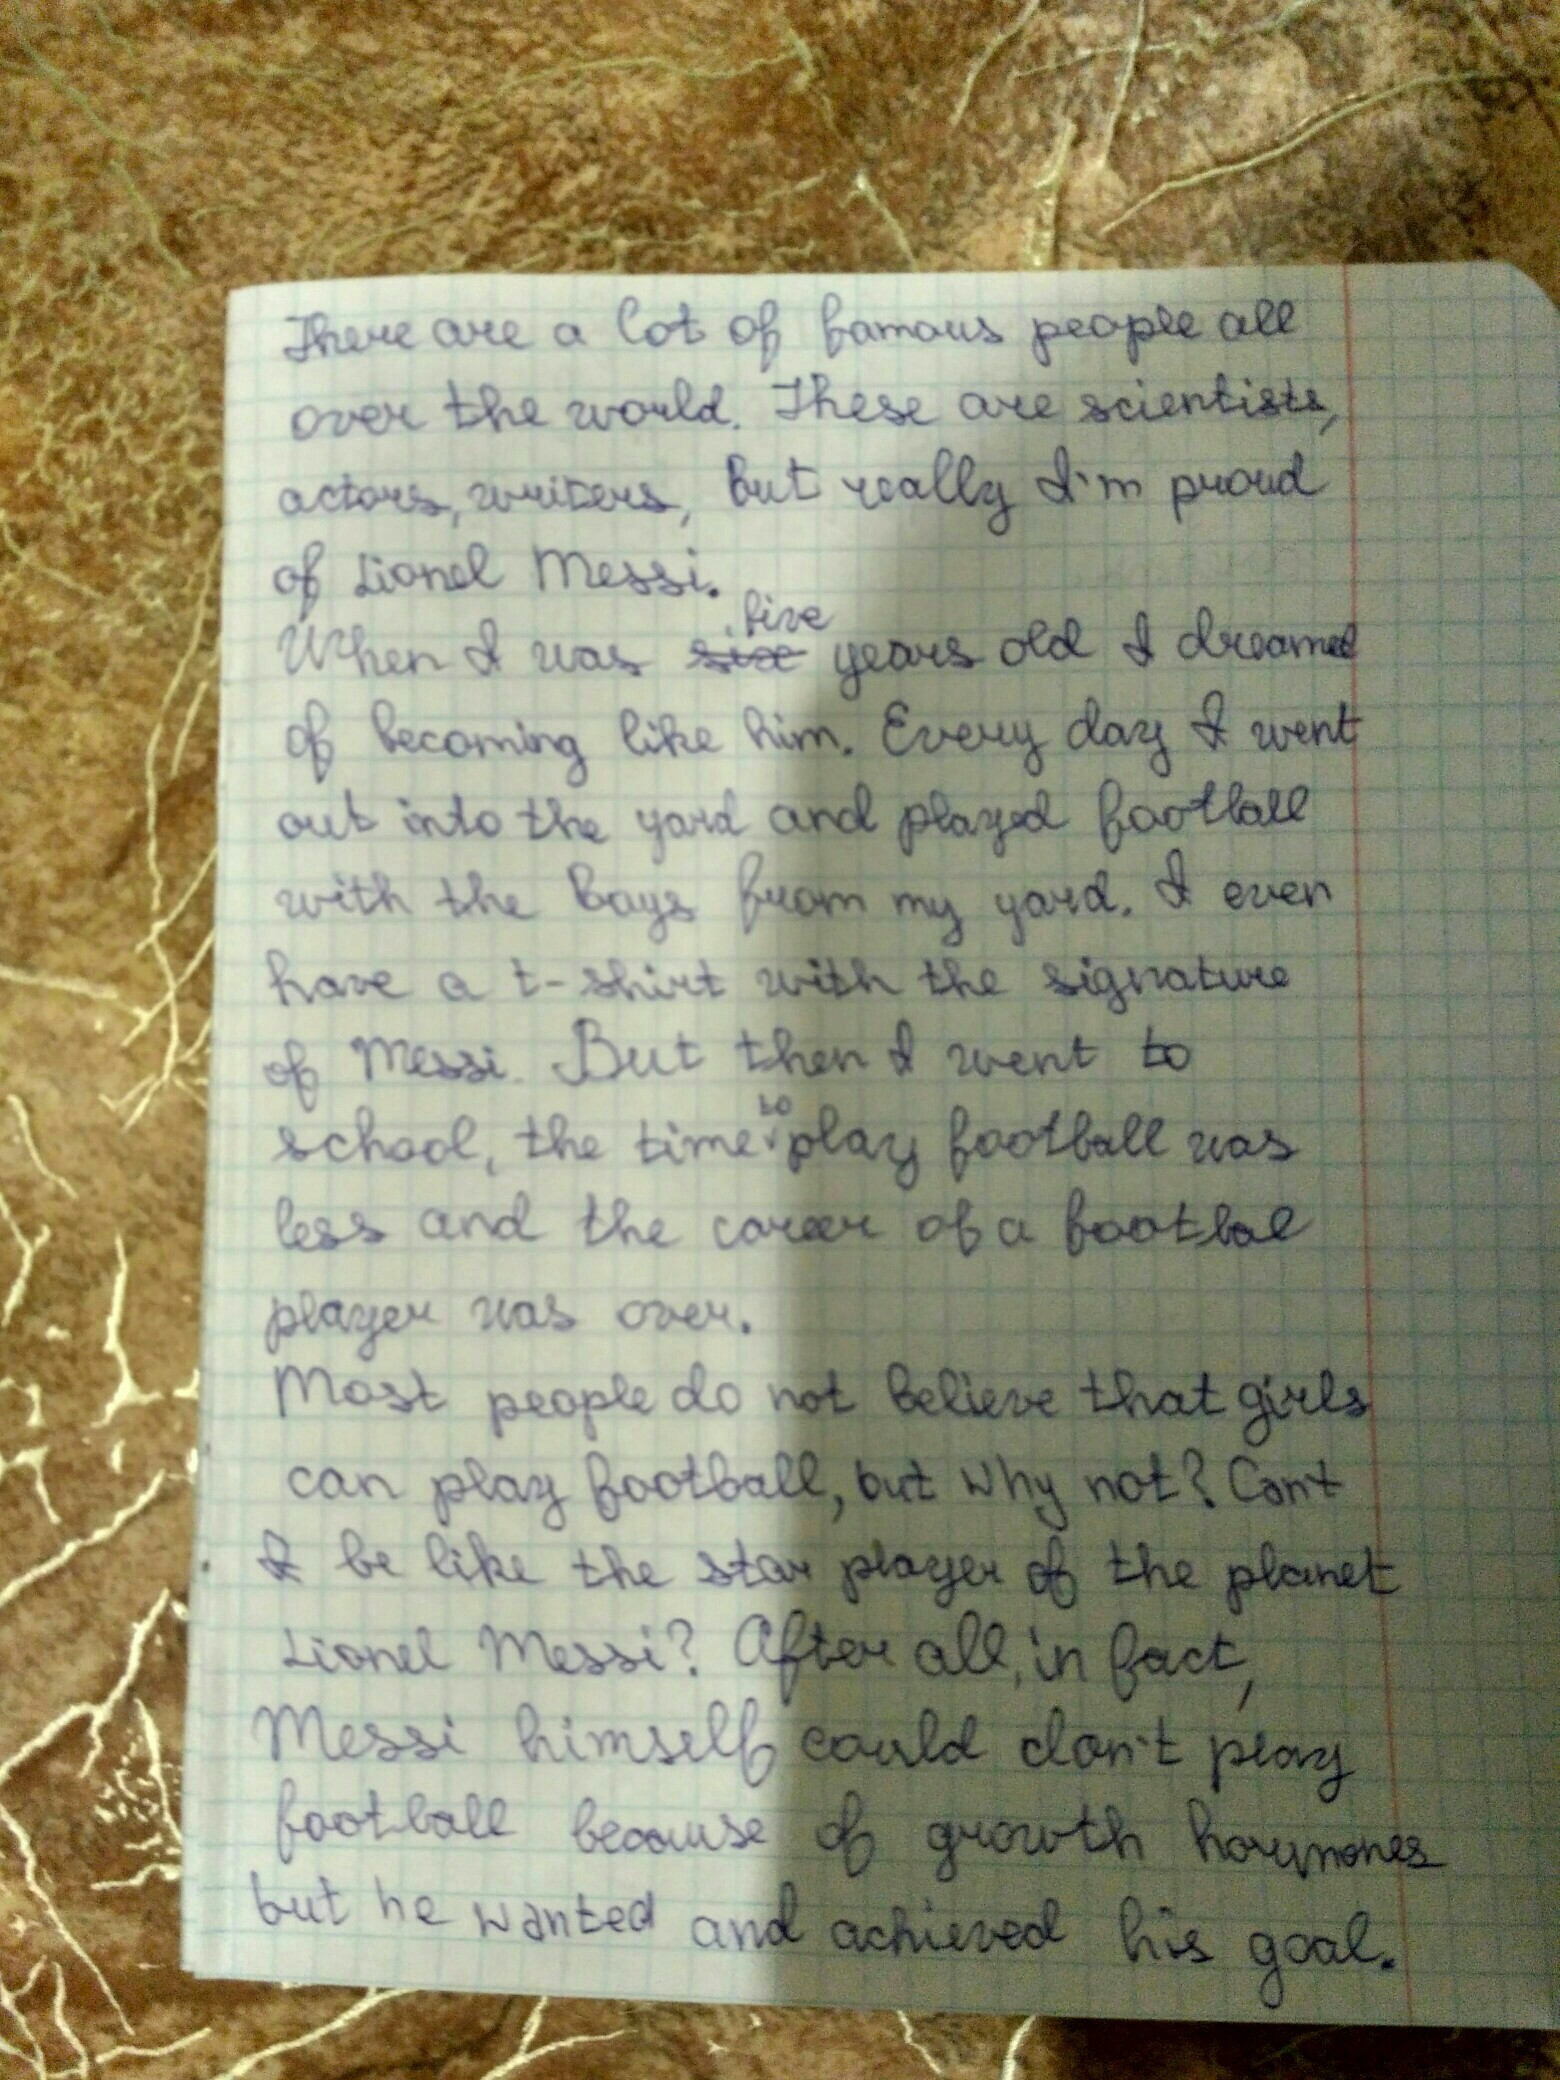 There are a lot of famous people all
over the world. These are scientists,
actors, writers, but really I'm proud
of Lionel Messi.
When I was six five years old I dreamed
of becoming like him. Every day I went
out into the yard and played football
with the boys from my yard. I even
have a t-shirt with the signature
of Messi. But then I went to
school, the time to play football was
less and the career of a footbal
player was over.
Most people do not believe that girls
can play football, but why not? Can't
I be like the star player of the planet
Lionel Messi? After all, in fact,
Messi himself could don't play
football because of growth horymones
but he wanted and achieved his goal.